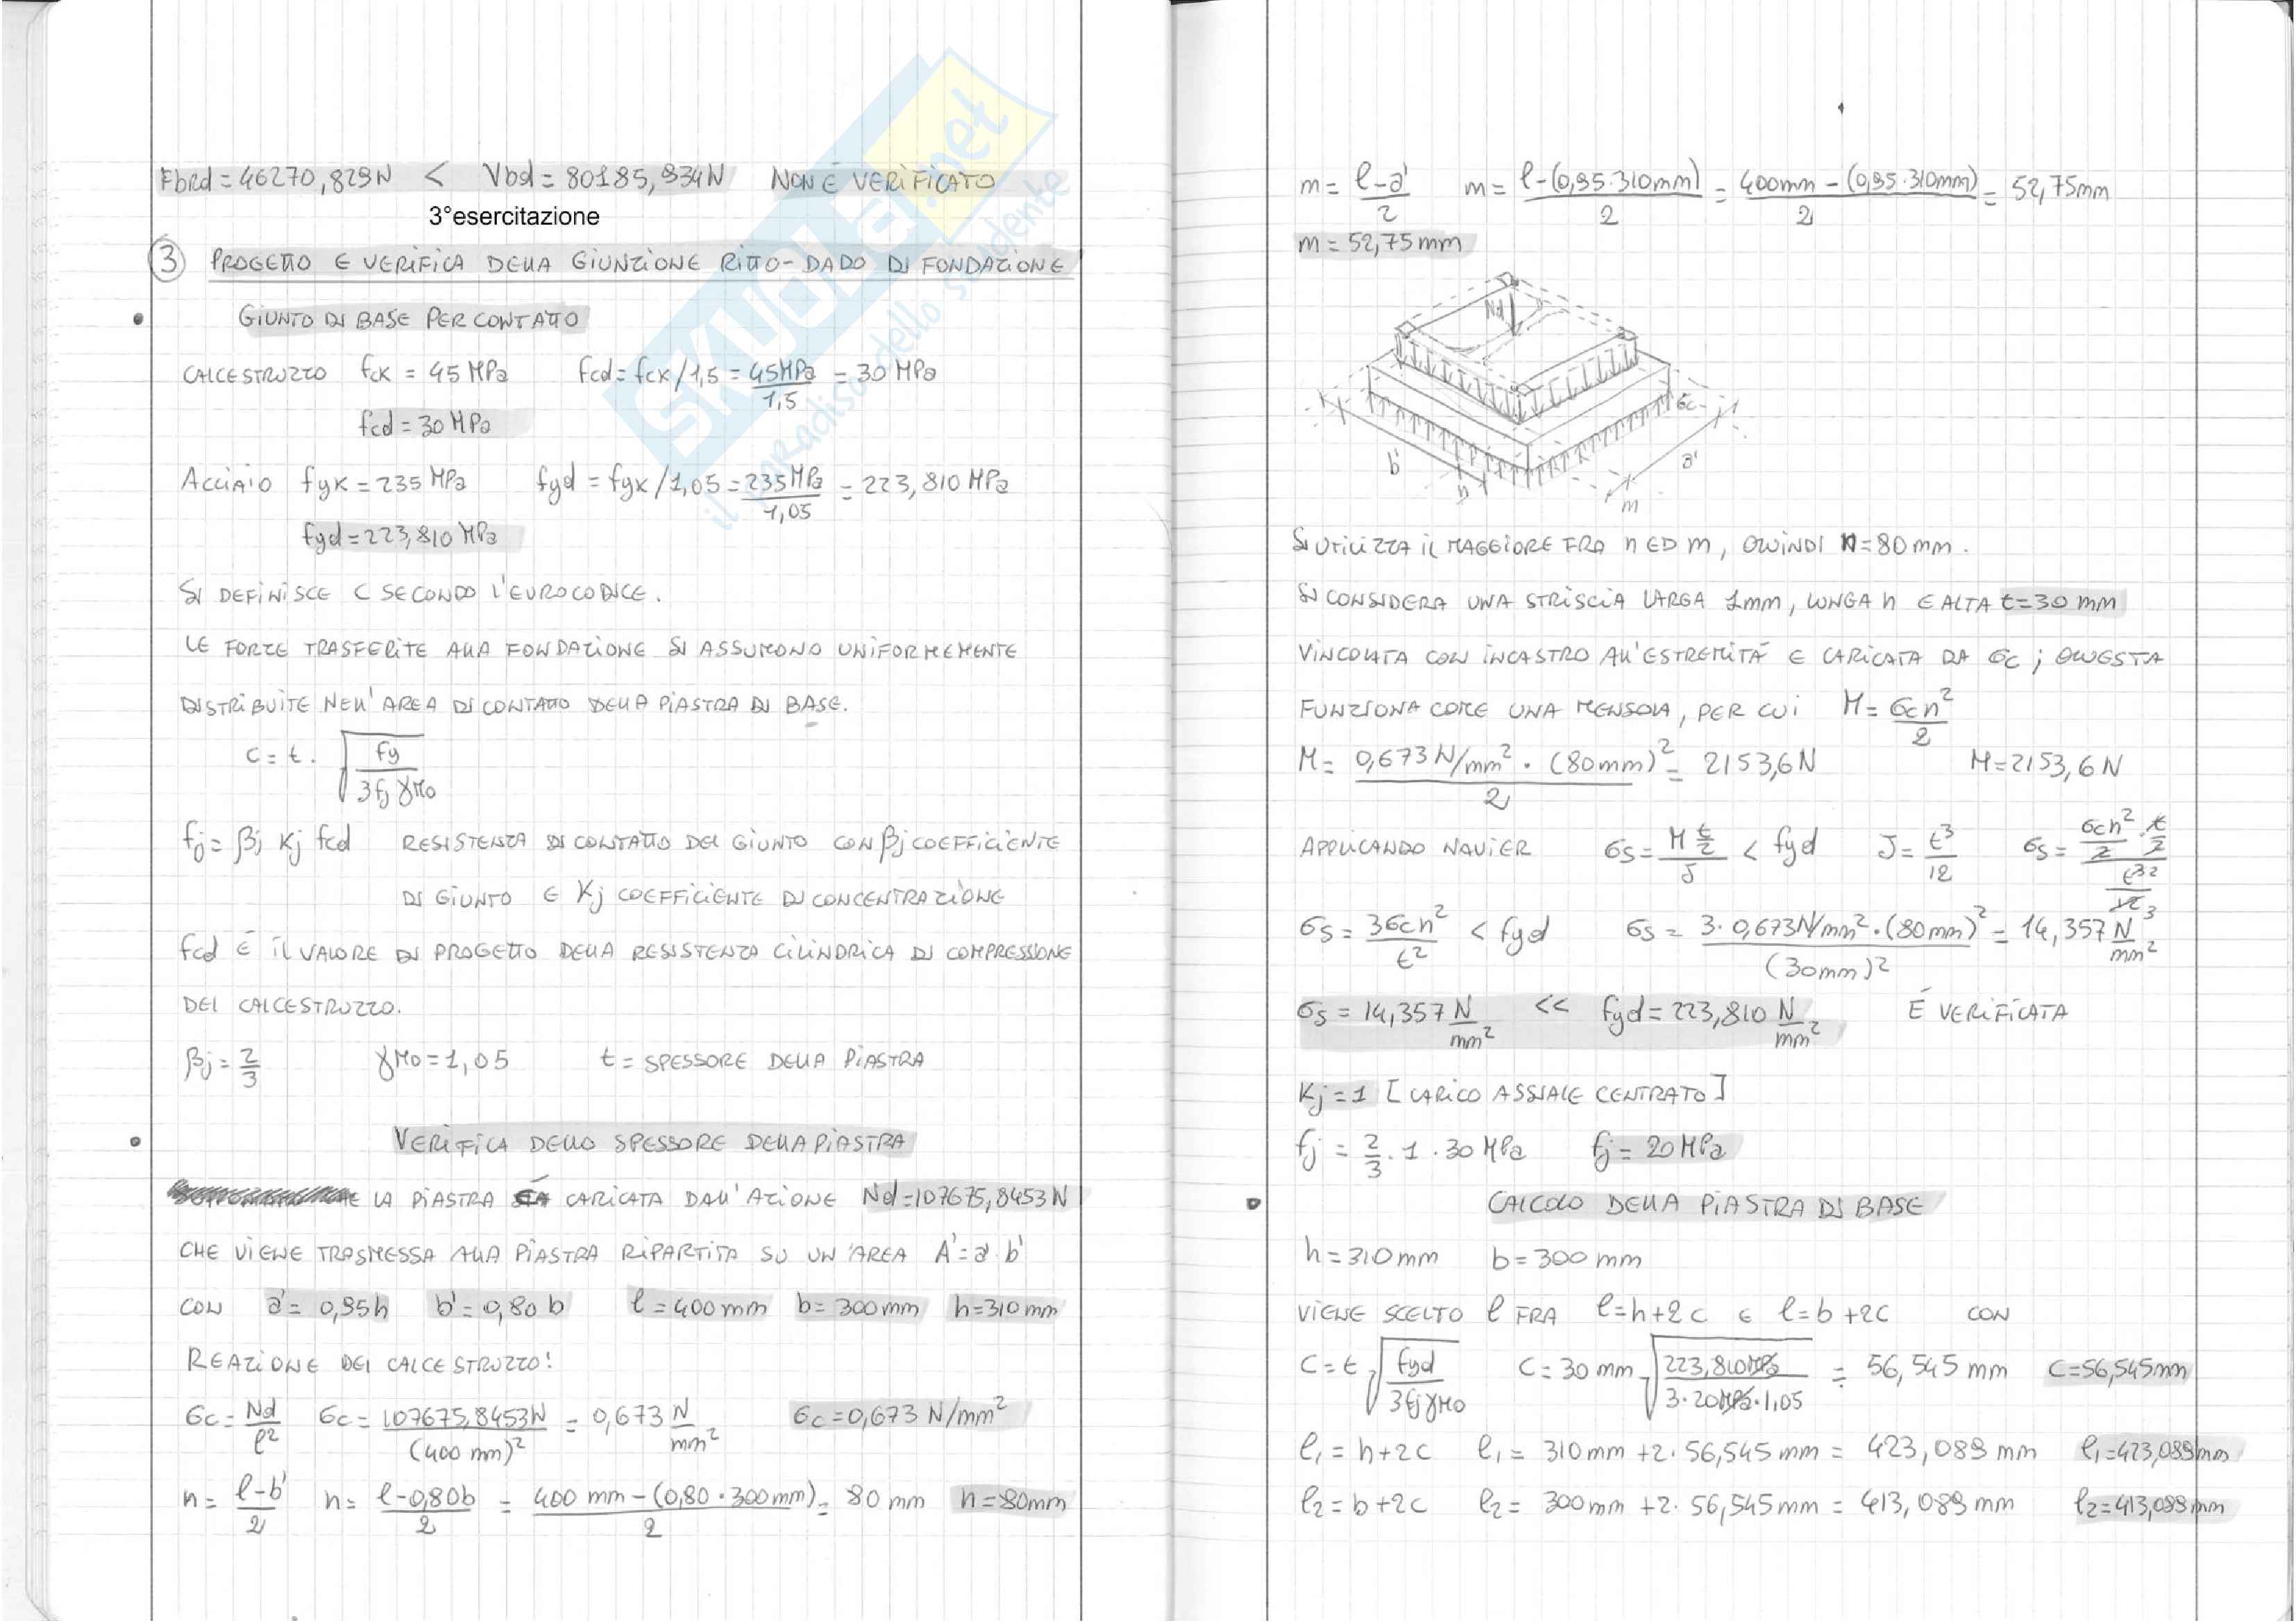 Fbrd = 46270,829N < Vbd = 80185,934N NON È VERIFICATO
3°esercitazione
③ PROGETTO E VERIFICA DELLA GIUNZIONE RITTO-DADO DI FONDAZIONE
• GIUNTO DI BASE PER CONTATTO
CALCESTRUZZO fck = 45 MPa fcd = fck/1,5 = 45MPa/1,5 = 30 MPa
fcd = 30 MPa
ACCIAIO fyk = 235 MPa fyd = fyk/1,05 = 235MPa/1,05 = 223,810 MPa
fyd = 223,810 MPa
SI DEFINISCE C SECONDO L'EUROCODICE.
LE FORZE TRASFERITE ALLA FONDAZIONE SI ASSUMONO UNIFORMEMENTE
DISTRIBUITE NELL'AREA DI CONTATTO DELLA PIASTRA DI BASE.
c = t · √(fy/(3fj γM0))
fj = βj Kj fcd RESISTENZA DI CONTATTO DEL GIUNTO CON βj COEFFICIENTE
DI GIUNTO E Kj COEFFICIENTE DI CONCENTRAZIONE
fcd È IL VALORE DI PROGETTO DELLA RESISTENZA CILINDRICA DI COMPRESSIONE
DEL CALCESTRUZZO.
βj = 2/3 γM0 = 1,05 t = SPESSORE DELLA PIASTRA
• VERIFICA DELLO SPESSORE DELLA PIASTRA
LA PIASTRA È CARICATA DALL'AZIONE Nd = 107675,8453 N
CHE VIENE TRASMESSA ALLA PIASTRA RIPARTITA SU UN'AREA A' = a' · b'
CON a' = 0,95h b' = 0,80 b l = 400 mm b = 300 mm h = 310 mm
REAZIONE DEL CALCESTRUZZO:
σc = Nd/l² σc = 107675,8453N/(400 mm)² = 0,673 N/mm² σc = 0,673 N/mm²
n = (l-b')/2 n = (l-0,80b)/2 = (400 mm-(0,80·300mm))/2 = 80 mm n = 80mm
m = (l-a')/2 m = (l-(0,95·310mm))/2 = (400mm-(0,95·310mm))/2 = 52,75mm
m = 52,75 mm
Nd
σc
b'
n
a'
m
SI UTILIZZA IL MAGGIORE FRA n ED m, QUINDI n = 80 mm.
SI CONSIDERA UNA STRISCIA LARGA 1mm, LUNGA n E ALTA t = 30 mm
VINCOLATA CON INCASTRO ALL'ESTREMITÀ E CARICATA DA σc ; QUESTA
FUNZIONA COME UNA MENSOLA, PER CUI M = σcn²/2
M = 0,673 N/mm² · (80mm)²/2 = 2153,6 N M = 2153,6 N
APPLICANDO NAVIER σs = (M t/2)/J < fyd J = t³/12 σs = (σcn²/2 · t/2)/(t³/12)
σs = 3σcn²/t² < fyd σs = 3·0,673N/mm²·(80mm)²/(30mm)² = 14,357 N/mm²
σs = 14,357 N/mm² << fyd = 223,810 N/mm² È VERIFICATA
Kj = 1 [CARICO ASSIALE CENTRATO]
fj = 2/3 · 1 · 30 MPa fj = 20 MPa
• CALCOLO DELLA PIASTRA DI BASE
h = 310 mm b = 300 mm
VIENE SCELTO l FRA l = h+2c E l = b+2c CON
C = t √(fyd/(3fjγM0)) C = 30 mm √(223,810MPa/(3·20MPa·1,05)) = 56,545 mm C = 56,545mm
l1 = h+2c l1 = 310 mm + 2·56,545 mm = 423,089 mm l1 = 423,089mm
l2 = b+2c l2 = 300mm + 2·56,545 mm = 413,089 mm l2 = 413,089 mm
SKUOLA.net
il paradiso dello studente